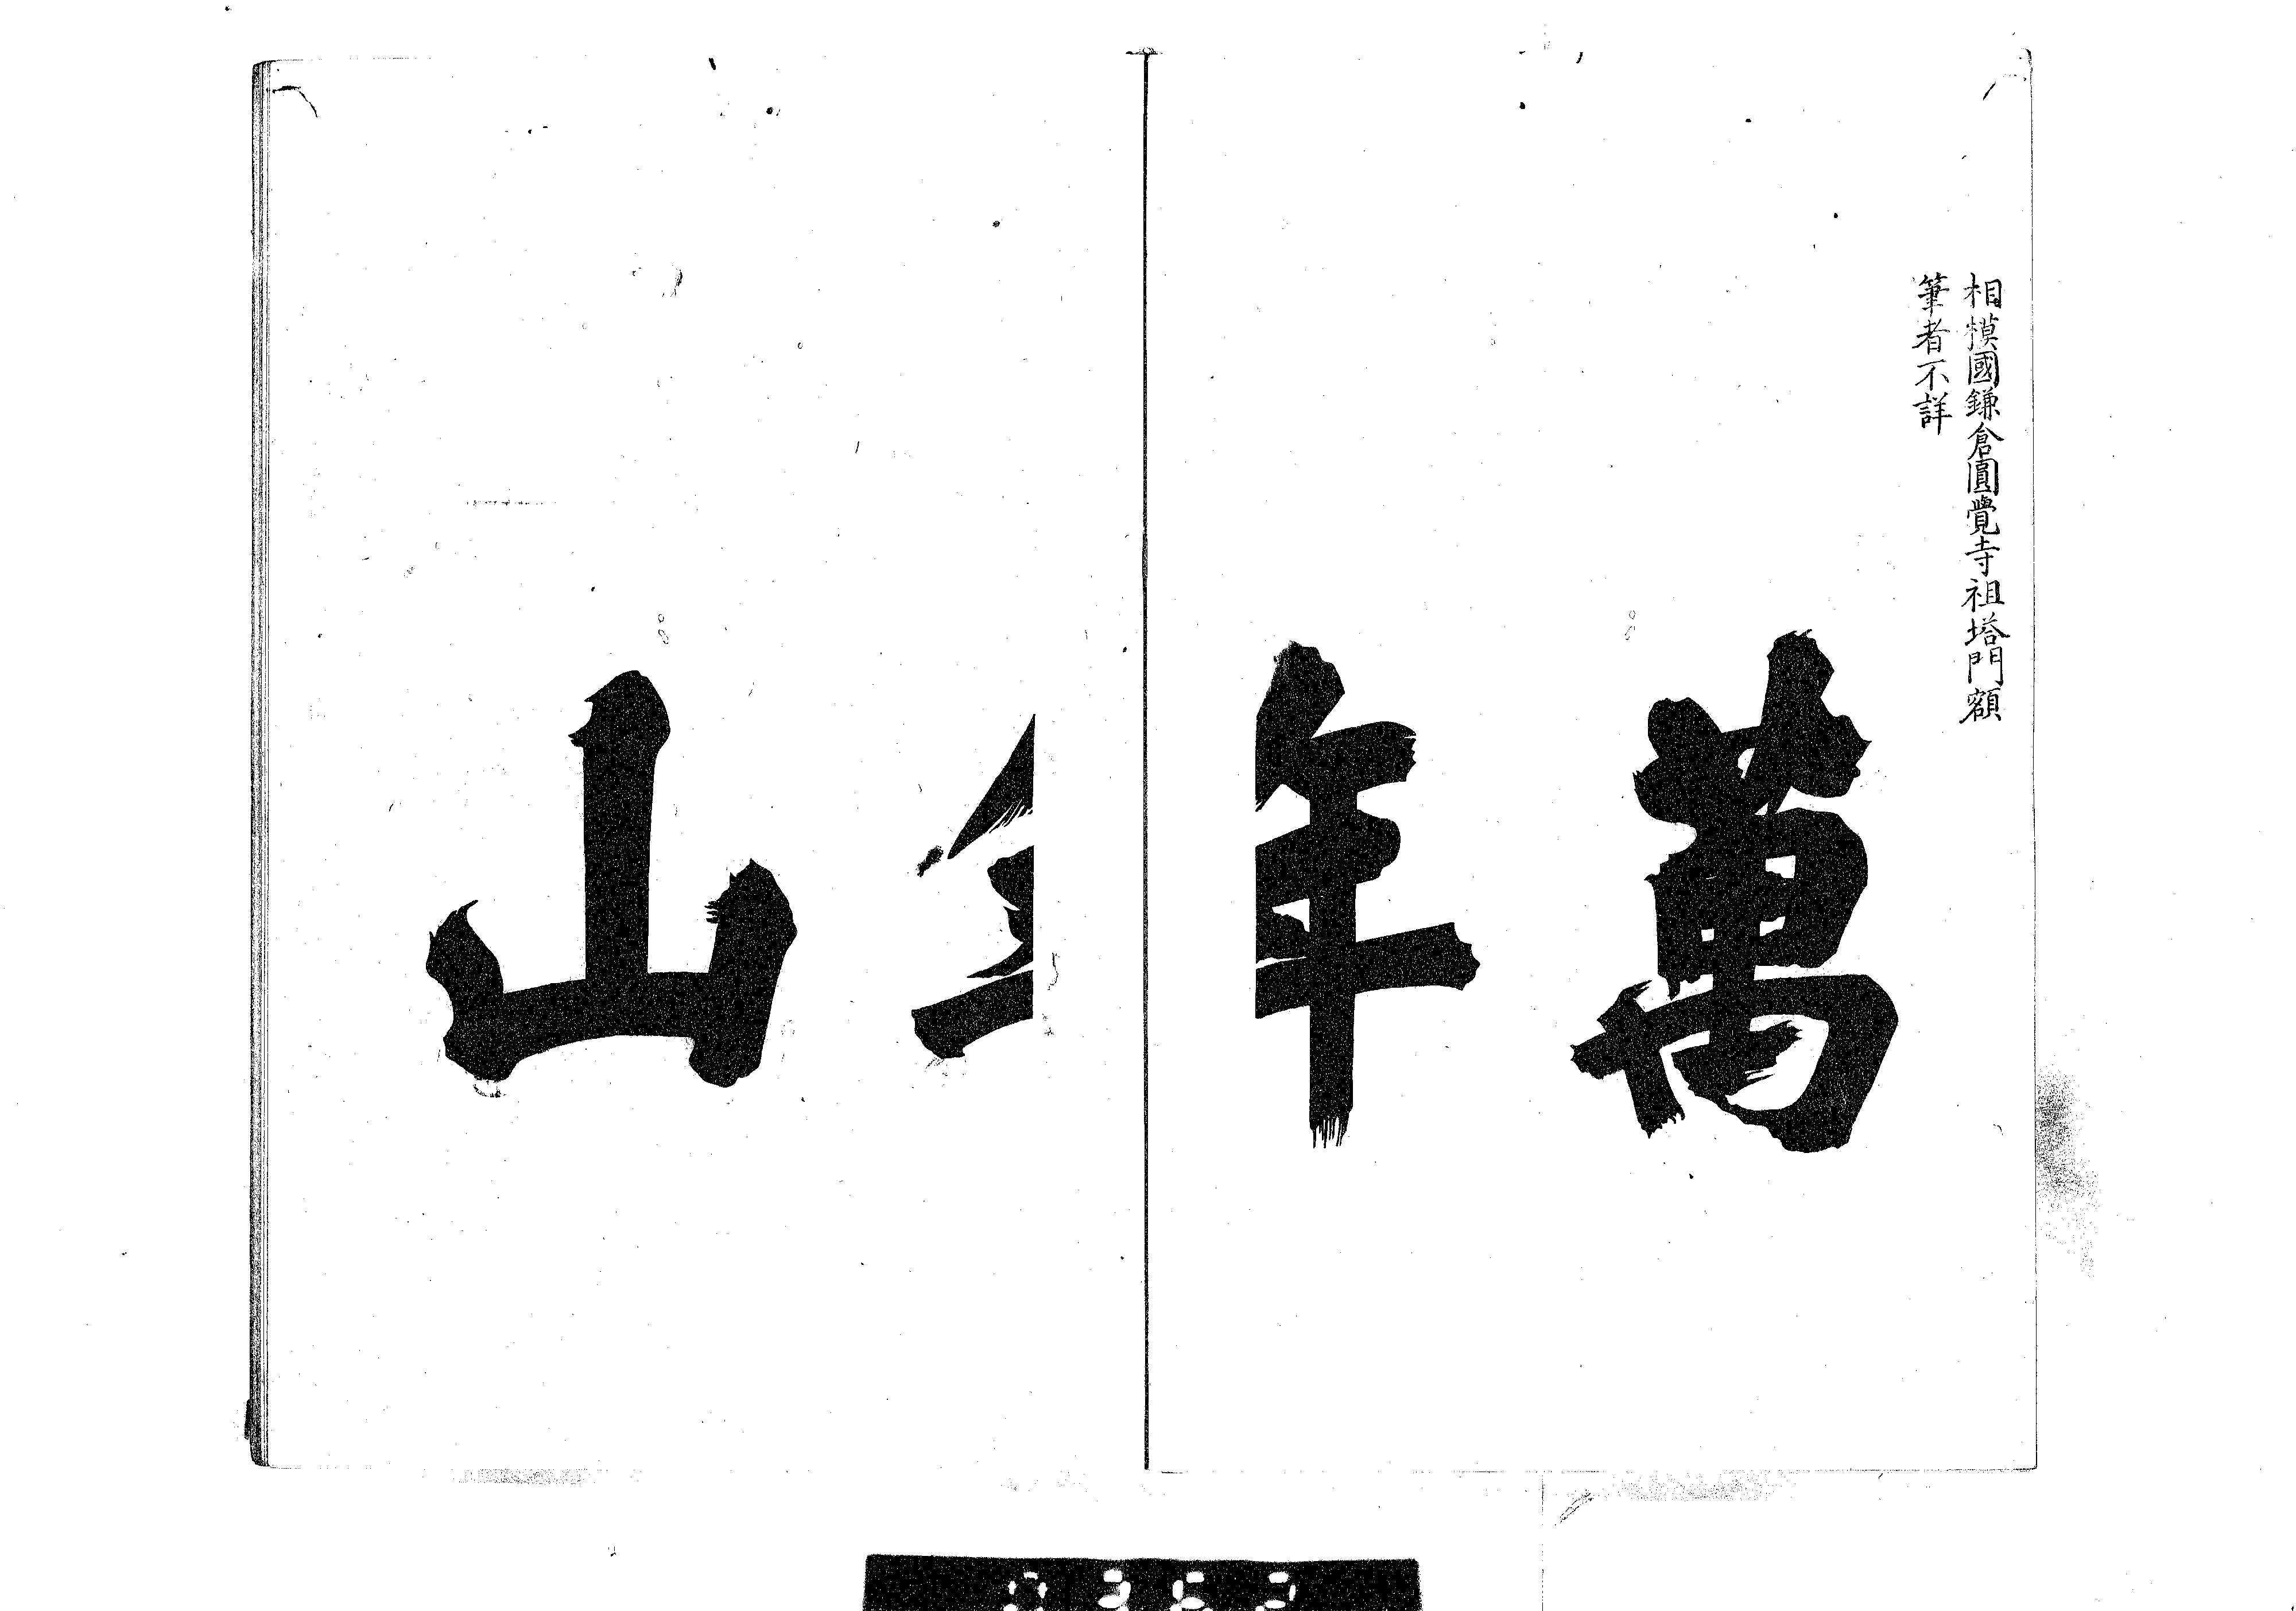 相模國鎌倉圓覺寺祖塔門額
筆者不詳
萬年山